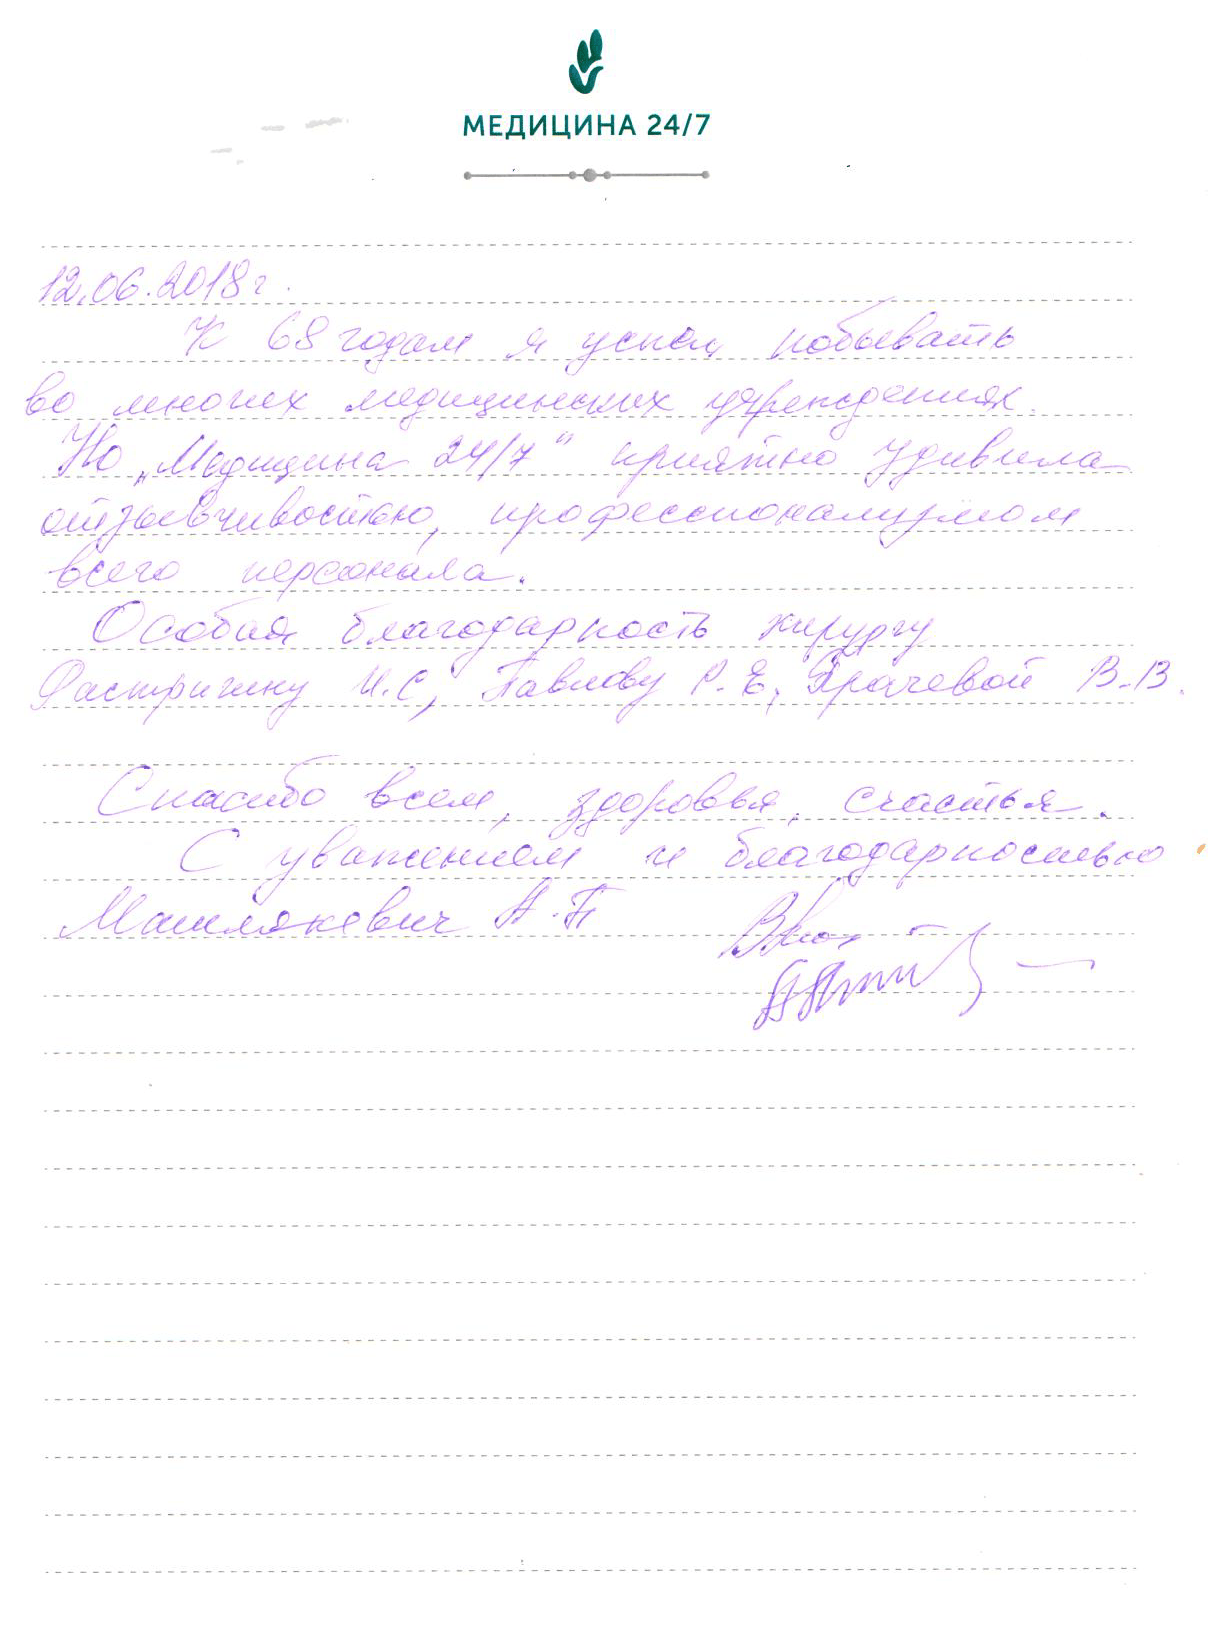 МЕДИЦИНА 24/7
12.06.2018 г.
К 68 годам я успел побывать
во многих медицинских учреждениях.
Но „Медицина 24/7“ приятно удивила
отзывчивостью, профессионализмом
всего персонала.
Особая благодарность хирургу
Растригину И.С, Павлову Р.Е,
В.В.
Спасибо всем, здоровья, счастья.
С уважением и благодарностью
А.П